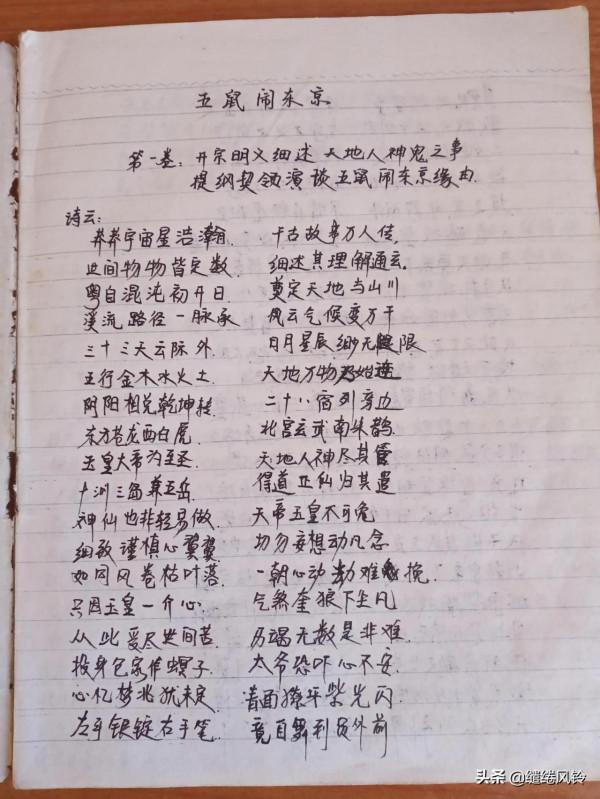 五鼠闹东京
第一卷:开宗明义细述天地人神鬼之事
提纲契领演谈五鼠闹东京缘由.
诗云:
莽莽宇宙星浩瀚. 十古故事万人传,
世间物物皆定数 细述其理解通玄.
粤自混沌初开日. 奠定天地与山川
溪流路径一脉承 风云气候变万千
三十三天云际外. 日月星辰细无限
五行金木水火土. 天地万物
阴阳相兑乾坤转 二十八宿列旁边
东方苍龙西白虎. 北宫玄武南朱鹊.
玉皇大帝为至圣. 天地人神尽其管
十洲三岛兼五岳. 得道正仙归其选
神仙也非轻易做. 天帝玉皇不可免
细致谨慎心翼翼 切勿妄想动凡念
如同风卷枯叶落. 一朝心动劫难挽.
只因玉皇一介心. 气煞奎狼下尘凡
从此受尽世间苦. 历竭无数是非难.
投身包家作螟子. 太爷恐吓心不安.
心忆梦兆犹未定 青面獠牙柴光闪.
左手银锭右手笔. 竟自舞到员外前
头条 @缱绻风铃